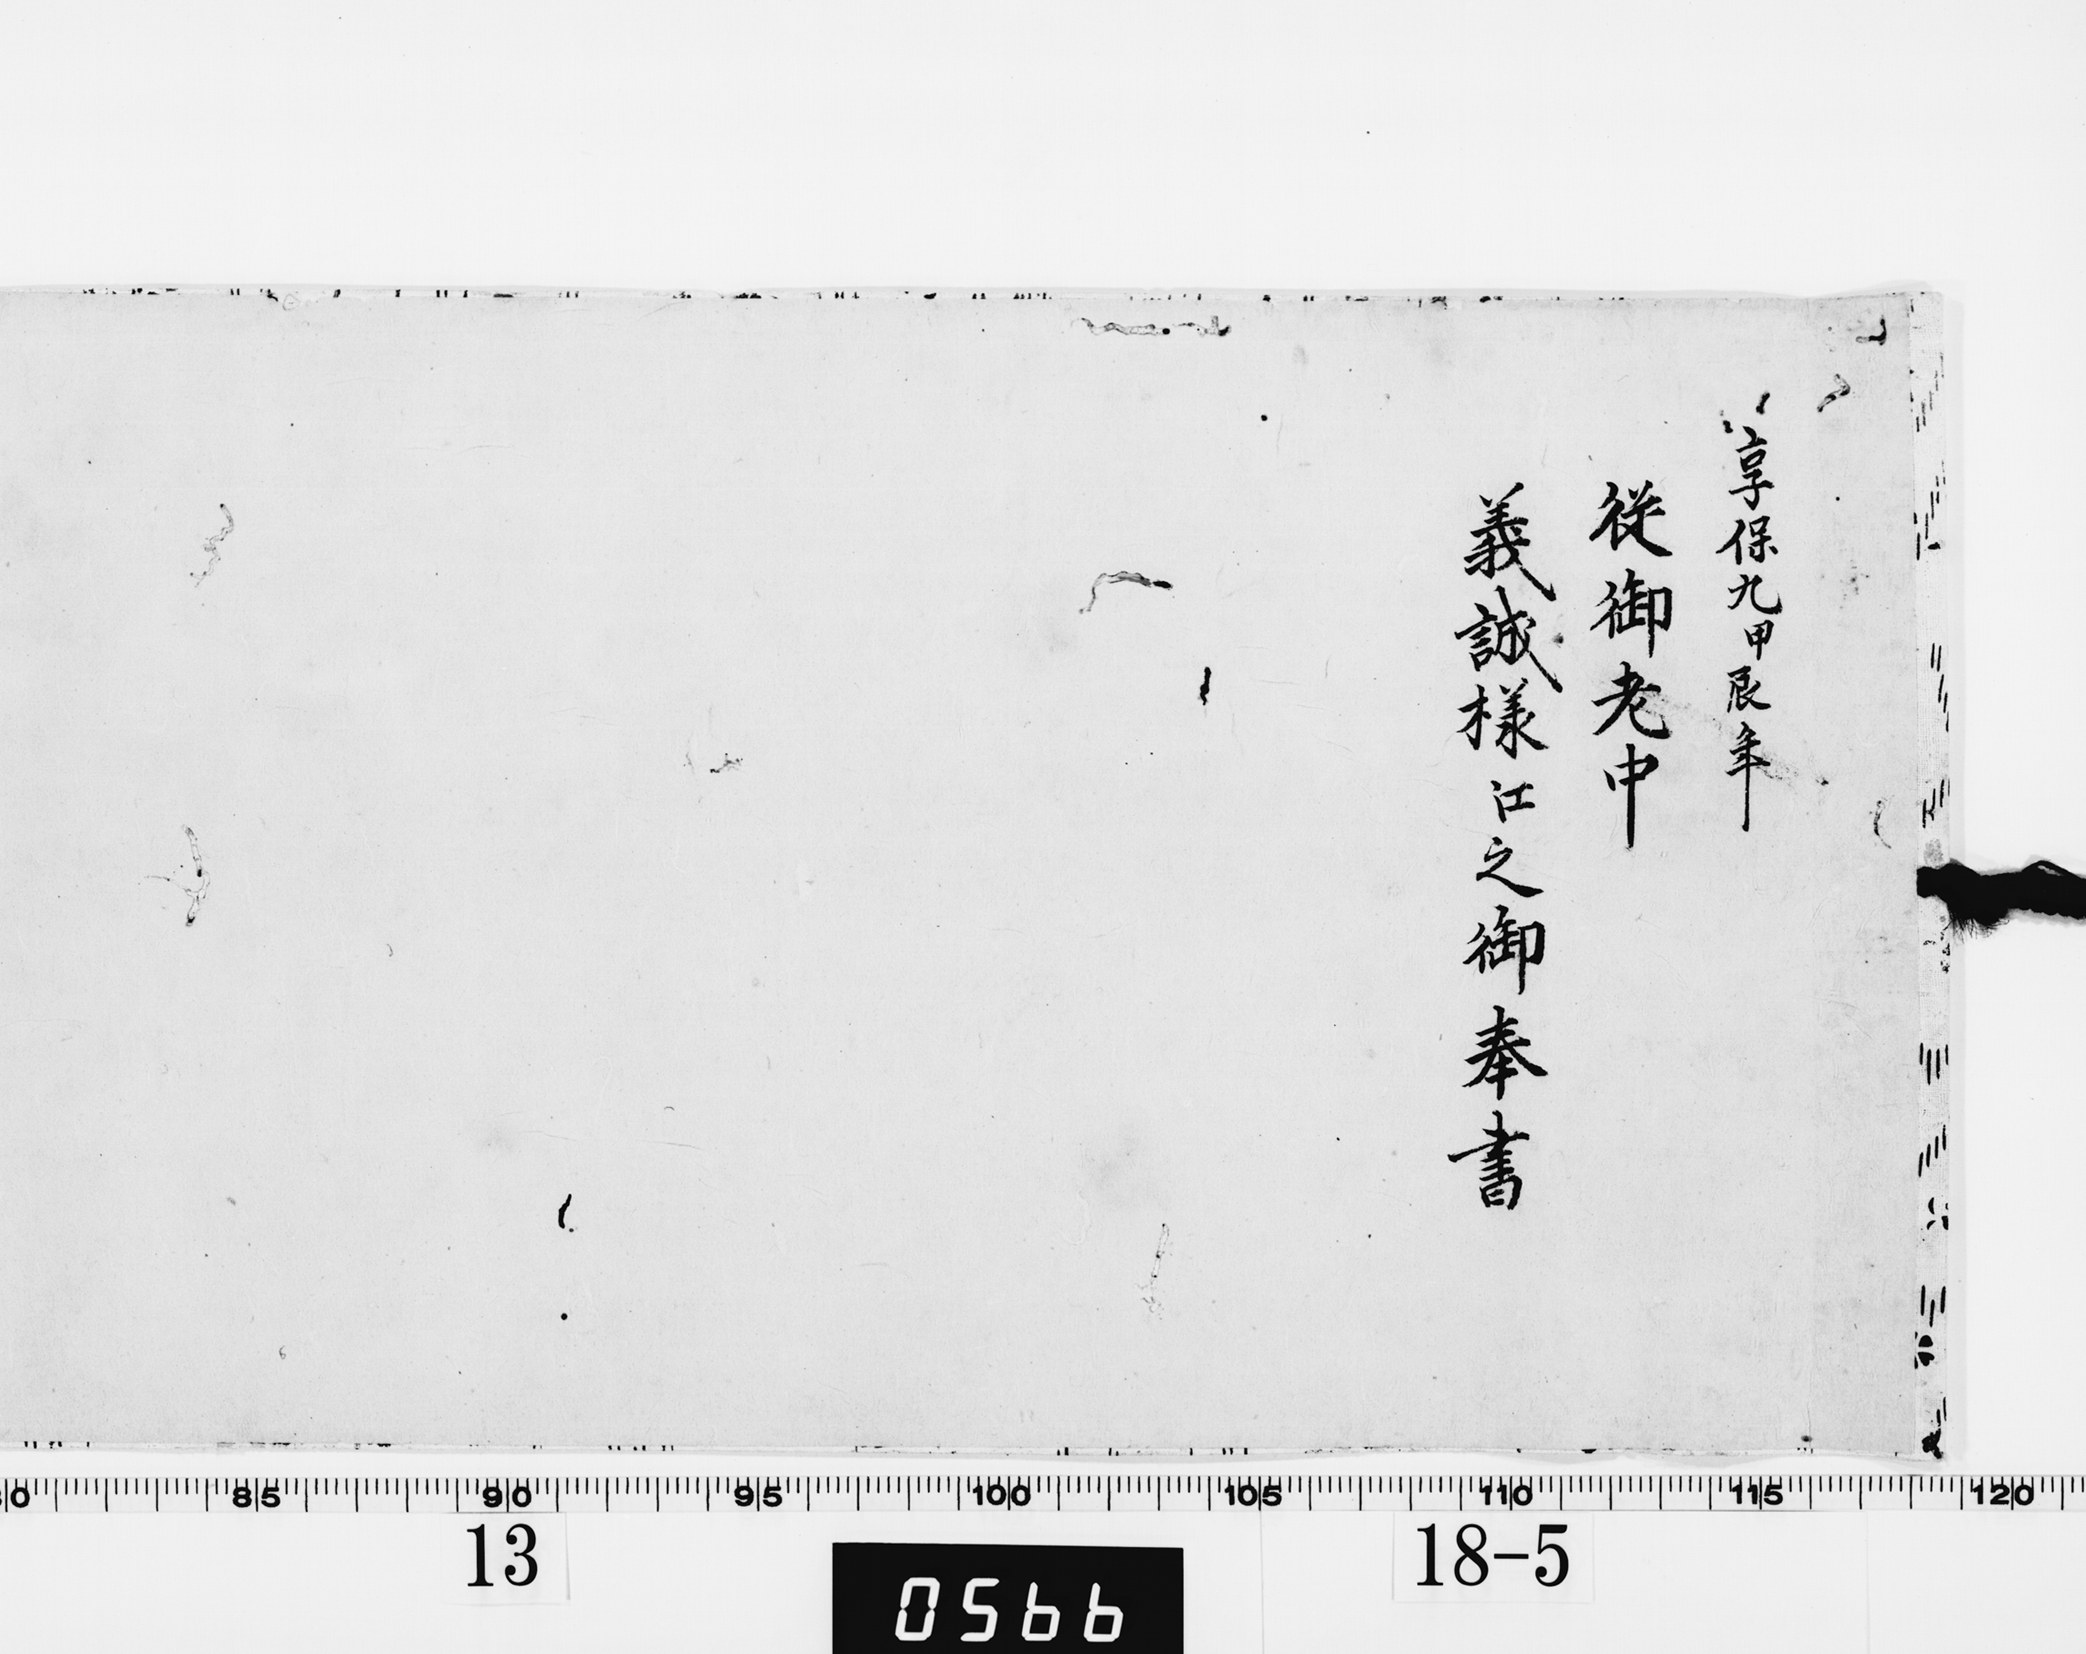 享保九甲辰年
従御老中
義誠様江之御奉書
80 85 90 95 100 105 110 115 120
13
18-5
0566